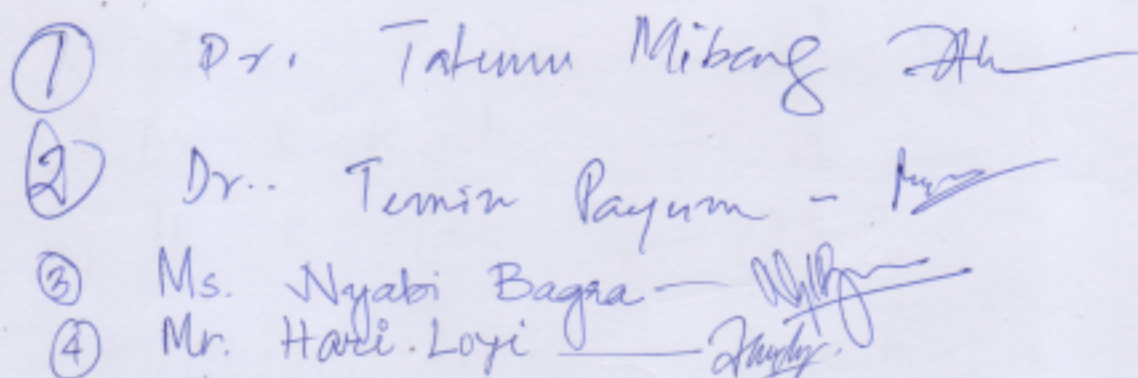 1 Dr. Tatumu Mibang
2 Dr.. Temin Payum -
3 Ms. Nyabi Bagra —
4 Mr. Hari. Loyi —